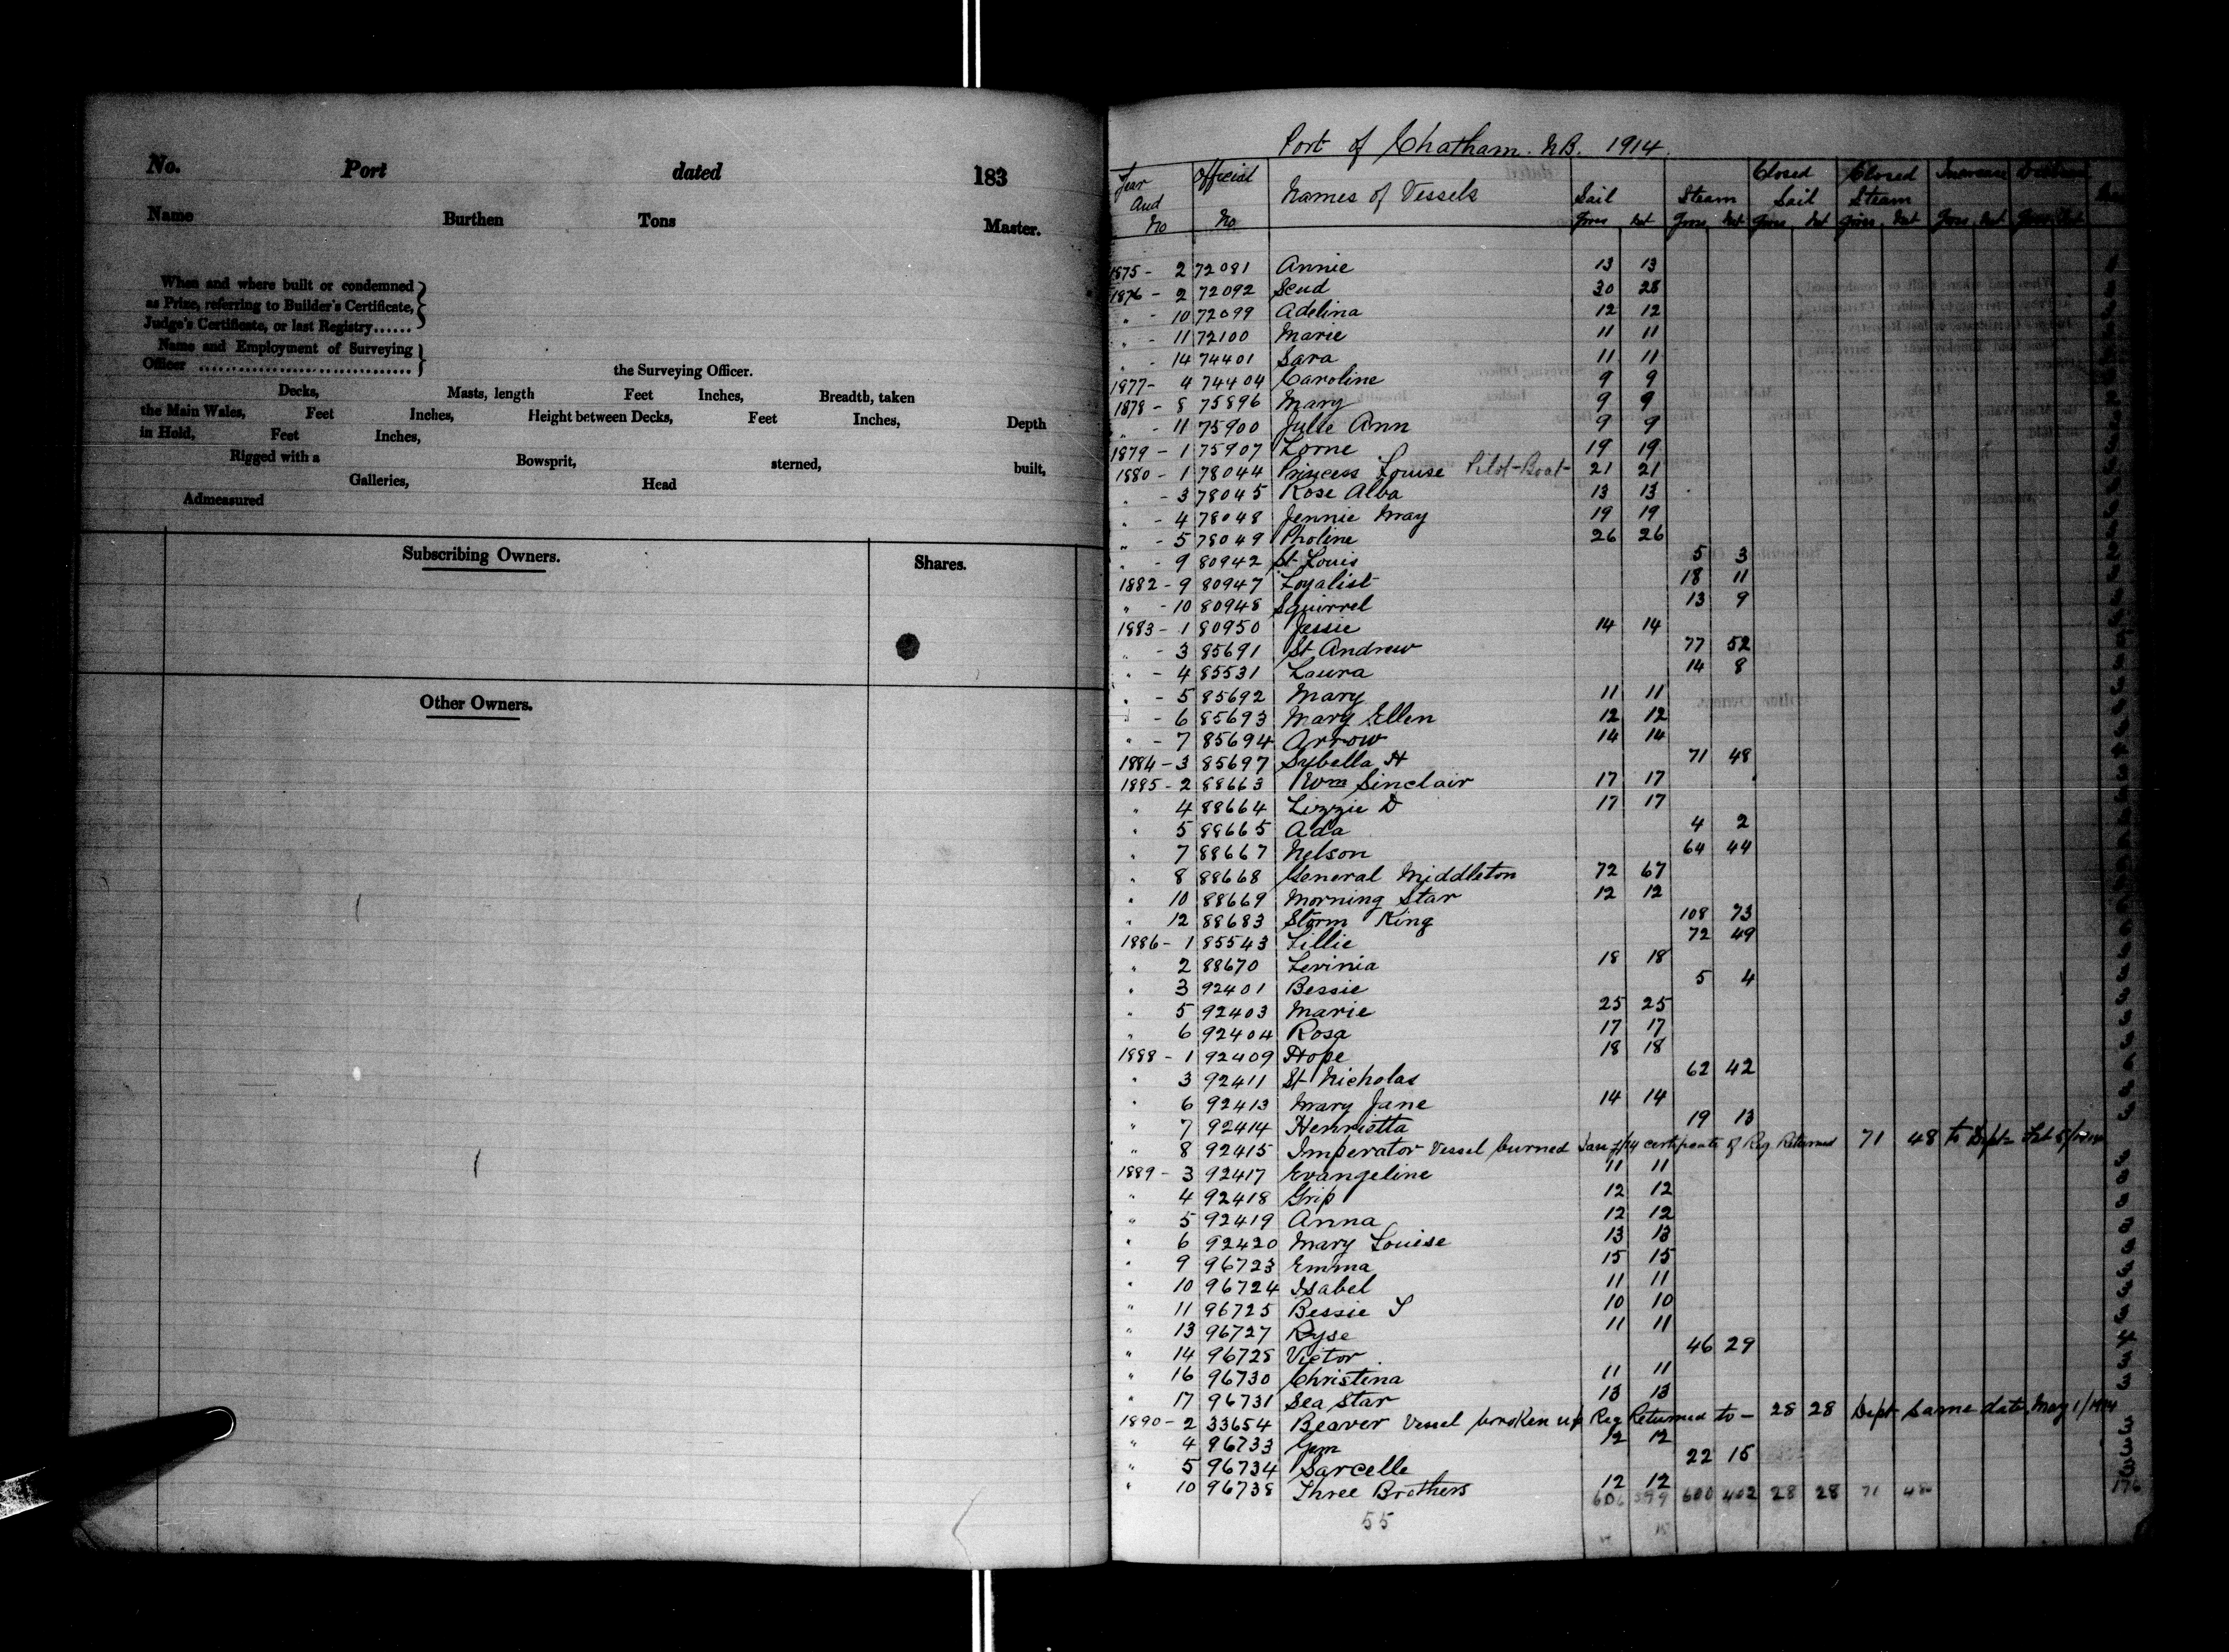 No. Port dated 183
Name Burthen Tons Master.
When and where built or condemned
as Prize, referring to Builder's Certificate,
Judge's Certificate, or last Registry......
Name and Employment of Surveying
Officer ................................ the Surveying Officer.
Decks, Masts, length Feet Inches, Breadth, taken
the Main Wales, Feet Inches, Height between Decks, Feet Inches, Depth
in Hold, Feet Inches,
Rigged with a Bowsprit, sterned, built,
Galleries, Head
Admeasured
Subscribing Owners. Shares.
Other Owners.
Port of Chatham. N.B. 1914.
Year and No Official No Names of Vessels Sail Gross Net Steam Gross Net Closed Sail Gross Net Closed Steam Gross Net Increase Gross Net Gross Net
1875 - 2 72081 Annie 13 13
1876 - 2 72092 Scud 30 28
" - 10 72099 Adelina 12 12
" - 11 72100 Marie 11 11
" - 14 74401 Sara 11 11
1877 - 4 74404 Caroline 9 9
1878 - 8 75896 Mary 9 9
" - 11 75900 Julie Ann 9 9
1879 - 1 75907 Lorne 19 19
1880 - 1 78044 Princess Louise Pilot-Boat- 21 21
" - 3 78045 Rose Alba 13 13
" - 4 78048 Jennie May 19 19
" - 5 78049 Pholine 26 26
" - 9 80942 St Louis 5 3
1882 - 9 80947 Loyalist 18 11
" - 10 80948 Squirrel 13 9
1883 - 1 80950 Jessie 14 14
" - 3 85691 St Andrew 77 52
" - 4 85531 Laura 14 8
" - 5 85692 Mary 11 11
" - 6 85693 Mary Ellen 12 12
" - 7 85694 Arrow 14 14
1884 - 3 85697 Sybella H 71 48
1885 - 2 88663 Wm Sinclair 17 17
" 4 88664 Lizzie D 17 17
" 5 88665 Ada 4 2
" 7 88667 Nelson 64 44
" 8 88668 General Middleton 72 67
" 10 88669 Morning Star 12 12
" 12 88683 Storm King 108 73
1886 - 1 85543 Lillie 72 49
" 2 88670 Levinia 18 18
" 3 92401 Bessie 5 4
" 5 92403 Marie 25 25
" 6 92404 Rosa 17 17
1888 - 1 92409 Hope 18 18
" 3 92411 St Nicholas 62 42
" 6 92413 Mary Jane 14 14
" 7 92414 Henrietta 19 13
" 8 92415 Imperator Vessel burned certificate of Reg Returned 71 48 to Dept
1889 - 3 92417 Evangeline 11 11
" 4 92418 Grip 12 12
" 5 92419 Anna 12 12
" 6 92420 Mary Louise 13 13
" 9 96723 Emma 15 15
" 10 96724 Isabel 11 11
" 11 96725 Bessie S 10 10
" 13 96727 Ryse 11 11
" 14 96728 Victor 46 29
" 16 96730 Christina 11 11
" 17 96731 Sea Star 13 13
1890 - 2 33654 Beaver Vessel broken up Reg Returned to - 28 28 Dept same date, May 1/1914
" 4 96733 Gem 12 12
" 5 96734 Sarcelle 22 15
" 10 96738 Three Brothers 12 12
606 599 600 402 28 28 71 48
55